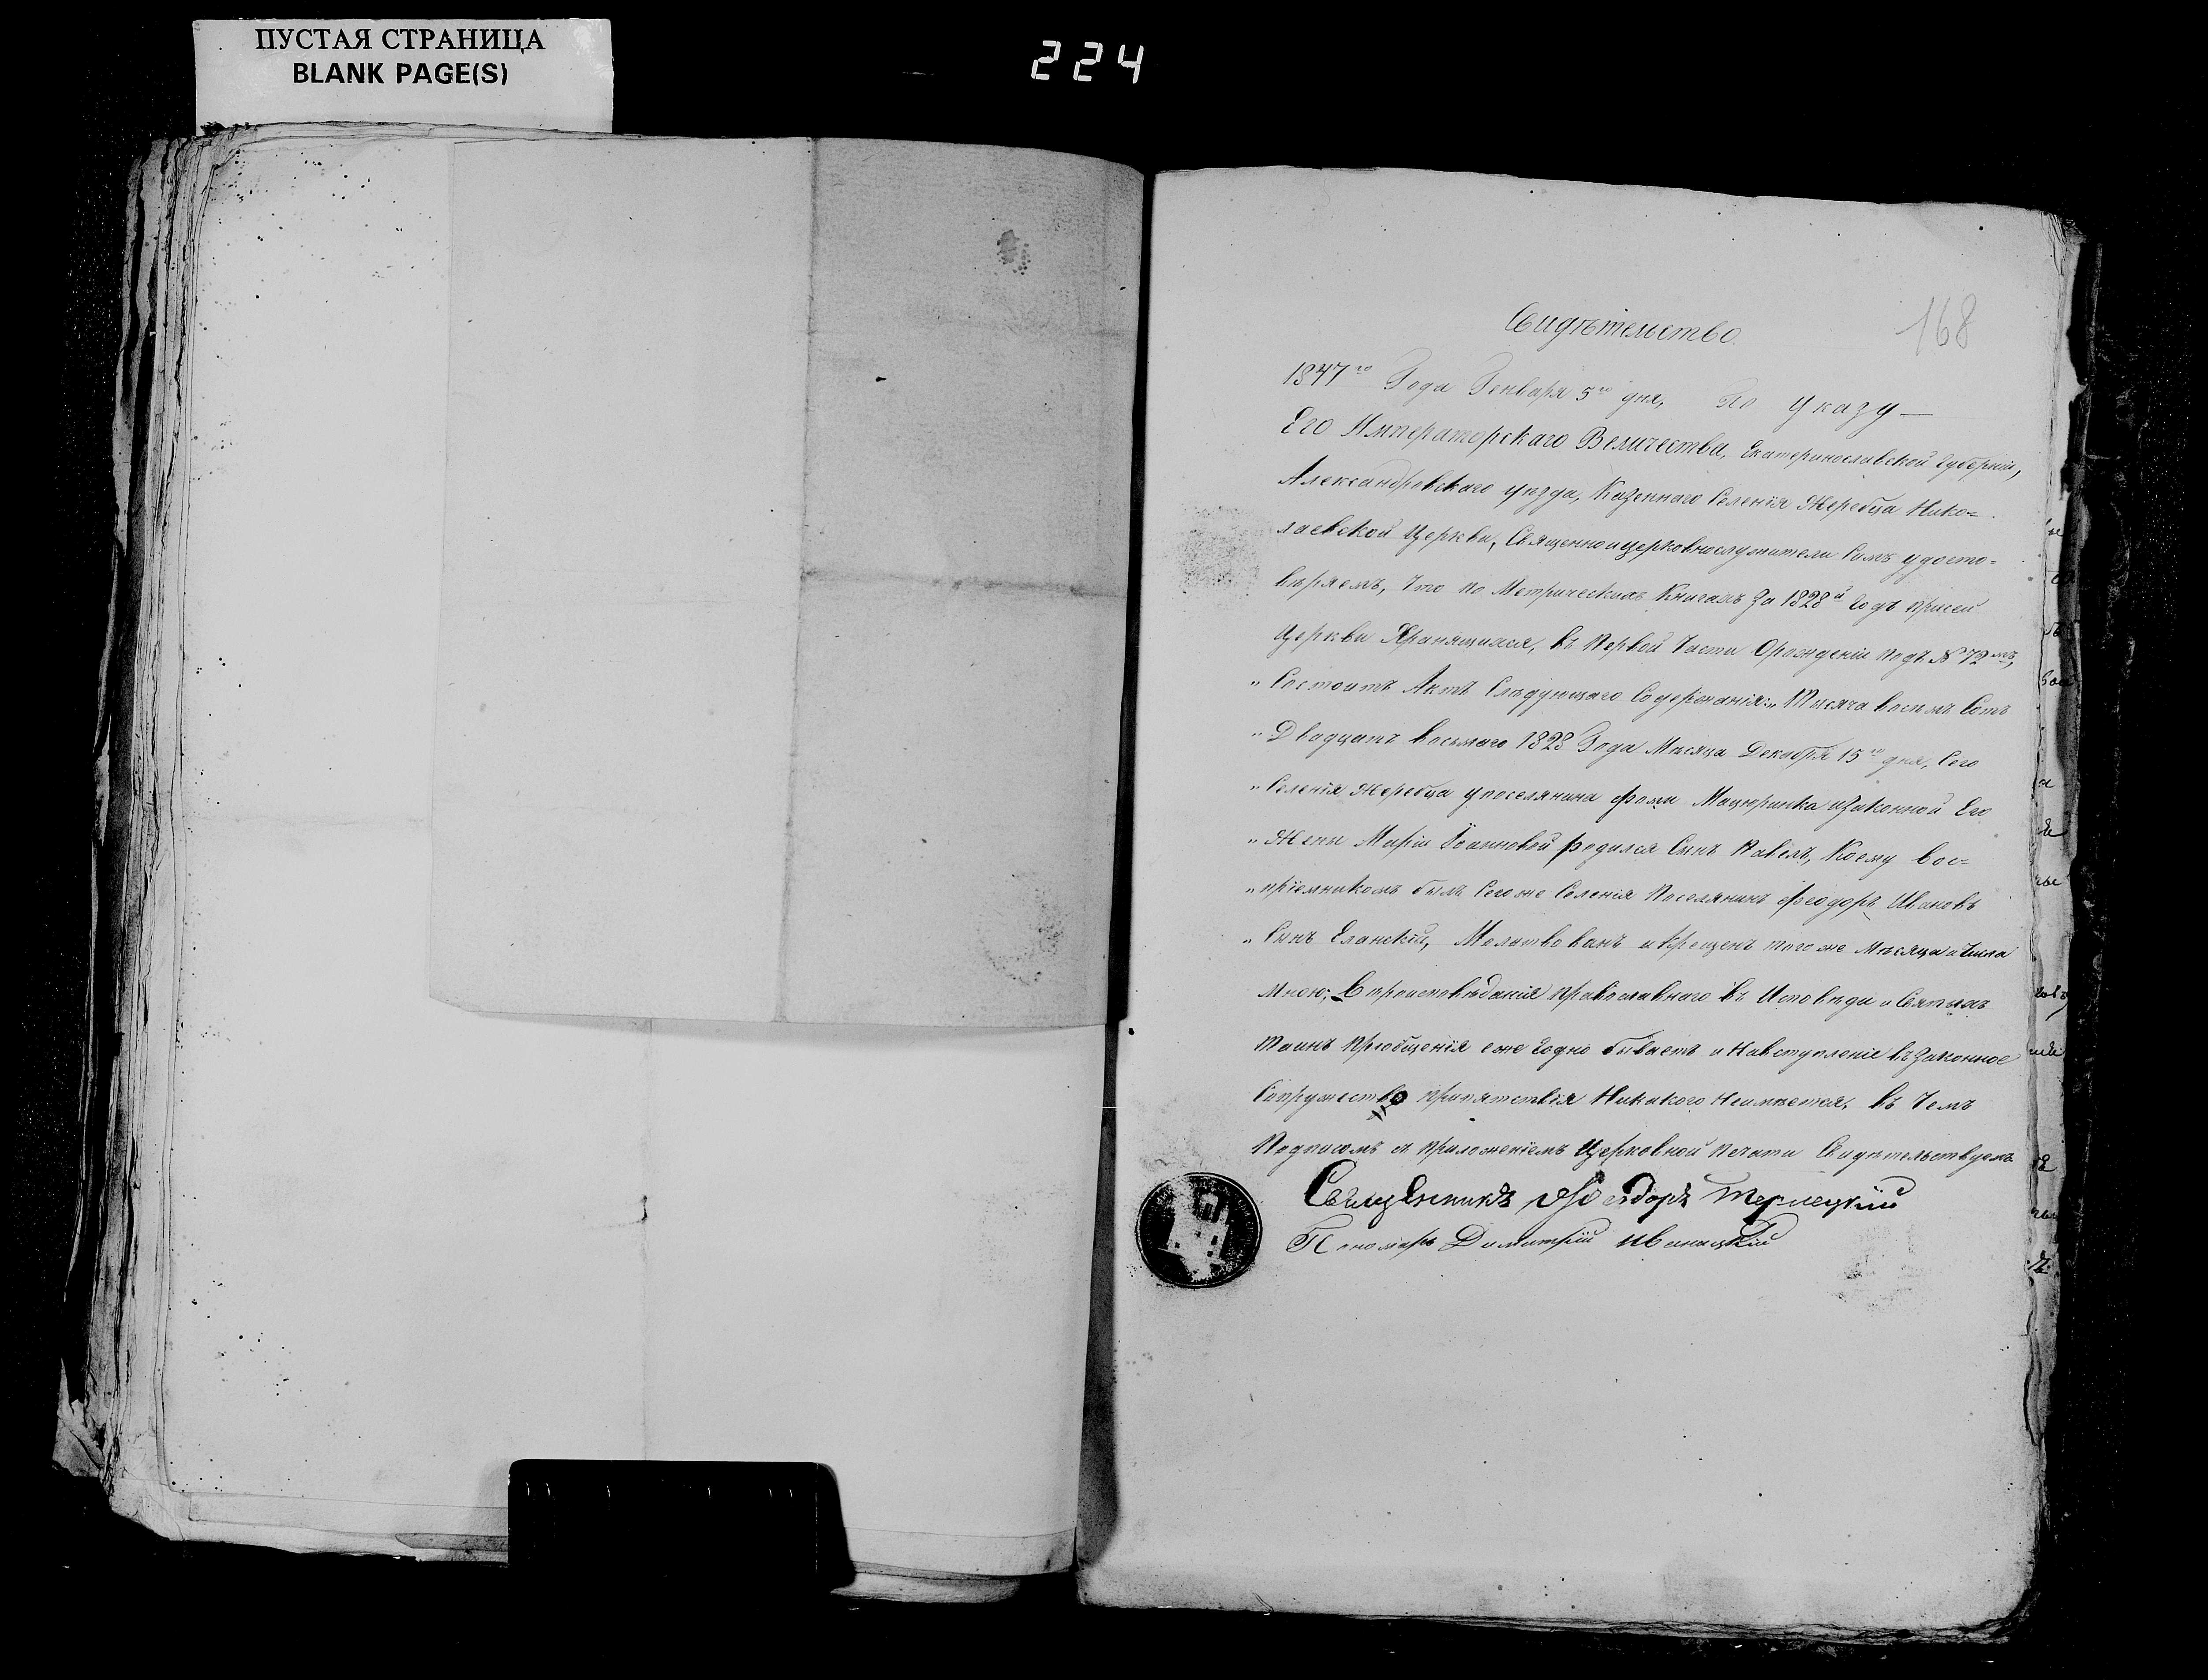 ПУСТАЯ СТРАНИЦА
BLANK PAGE(S)
224
168
Свидѣтельство.
1847го Года Генваря 5го дня, По указу —
Его Императорскаго Величества, Екатеринославской Губерніи,
Александровскаго уѣзда, Казеннаго Селенія Жеребца Нико=
лаевской Церкви, Священноицерковнослужители Симъ удосто=
вѣряемъ, Что по Метрическимъ Книгамъ За 1828й Годъ присей
Церкви Хранящимся, въ Первой Части Орожденіи подъ № 72мъ,
„ Состоитъ Актъ Слѣдующаго Содержанія: „ Тысяча восемь Сотъ
„ Двадцать восьмаго 1828 Года Мѣсяца Декабря 15го дня, Сего
„ Селенія Жеребца упоселянина Фомы Мацюринка иЗаконной Его
„ Жены Маріи Іоанновой родился Сынъ Павелъ, Коему вос=
„ пріемникомъ былъ Сегоже Селенія Поселянинъ Феодоръ Ивановъ
„ Сынъ Еланскій, Молитвованъ и Крещенъ того же Мѣсяца и Числа
Мною; Вѣроисповѣданія православнаго въ Исповѣди и Святыхъ
Таинъ пріобщенія еже годно бываетъ и Навступленіе въ Законное
Супружество препятствія Никакого Неимѣется. въ Чемъ
Подписомъ съ приложеніемъ Церковной печати Свидѣтельствуемъ
Священникъ Феодоръ Терлецкій
Пономарь Димитрій Иваницкій